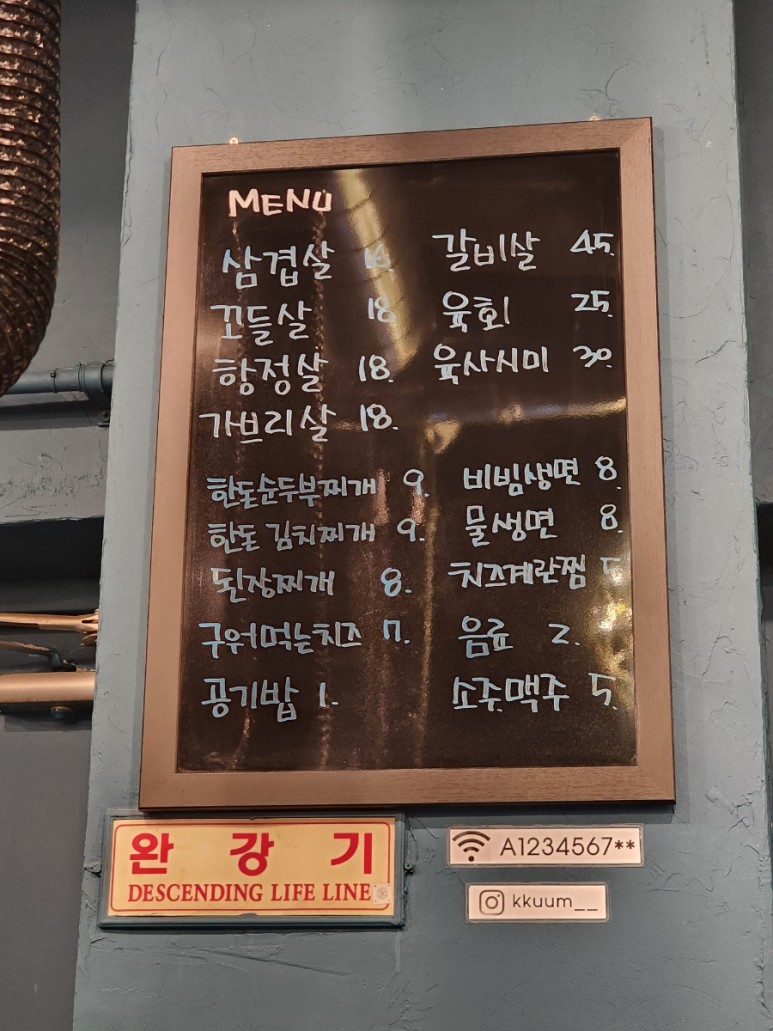 MENU
삼겹살 16.
꼬들살 18.
항정살 18.
가브리살 18.
갈비살 45.
육회 25.
육사시미 30.
한돈순두부찌개 9.
한돈 김치찌개 9.
된장찌개 8.
구워먹는치즈 7.
공기밥 1.
비빔생면 8.
물생면 8.
치즈계란찜
음료 2.
소주.맥주 5.
완강기
DESCENDING LIFE LINE
A1234567**
kkuum__